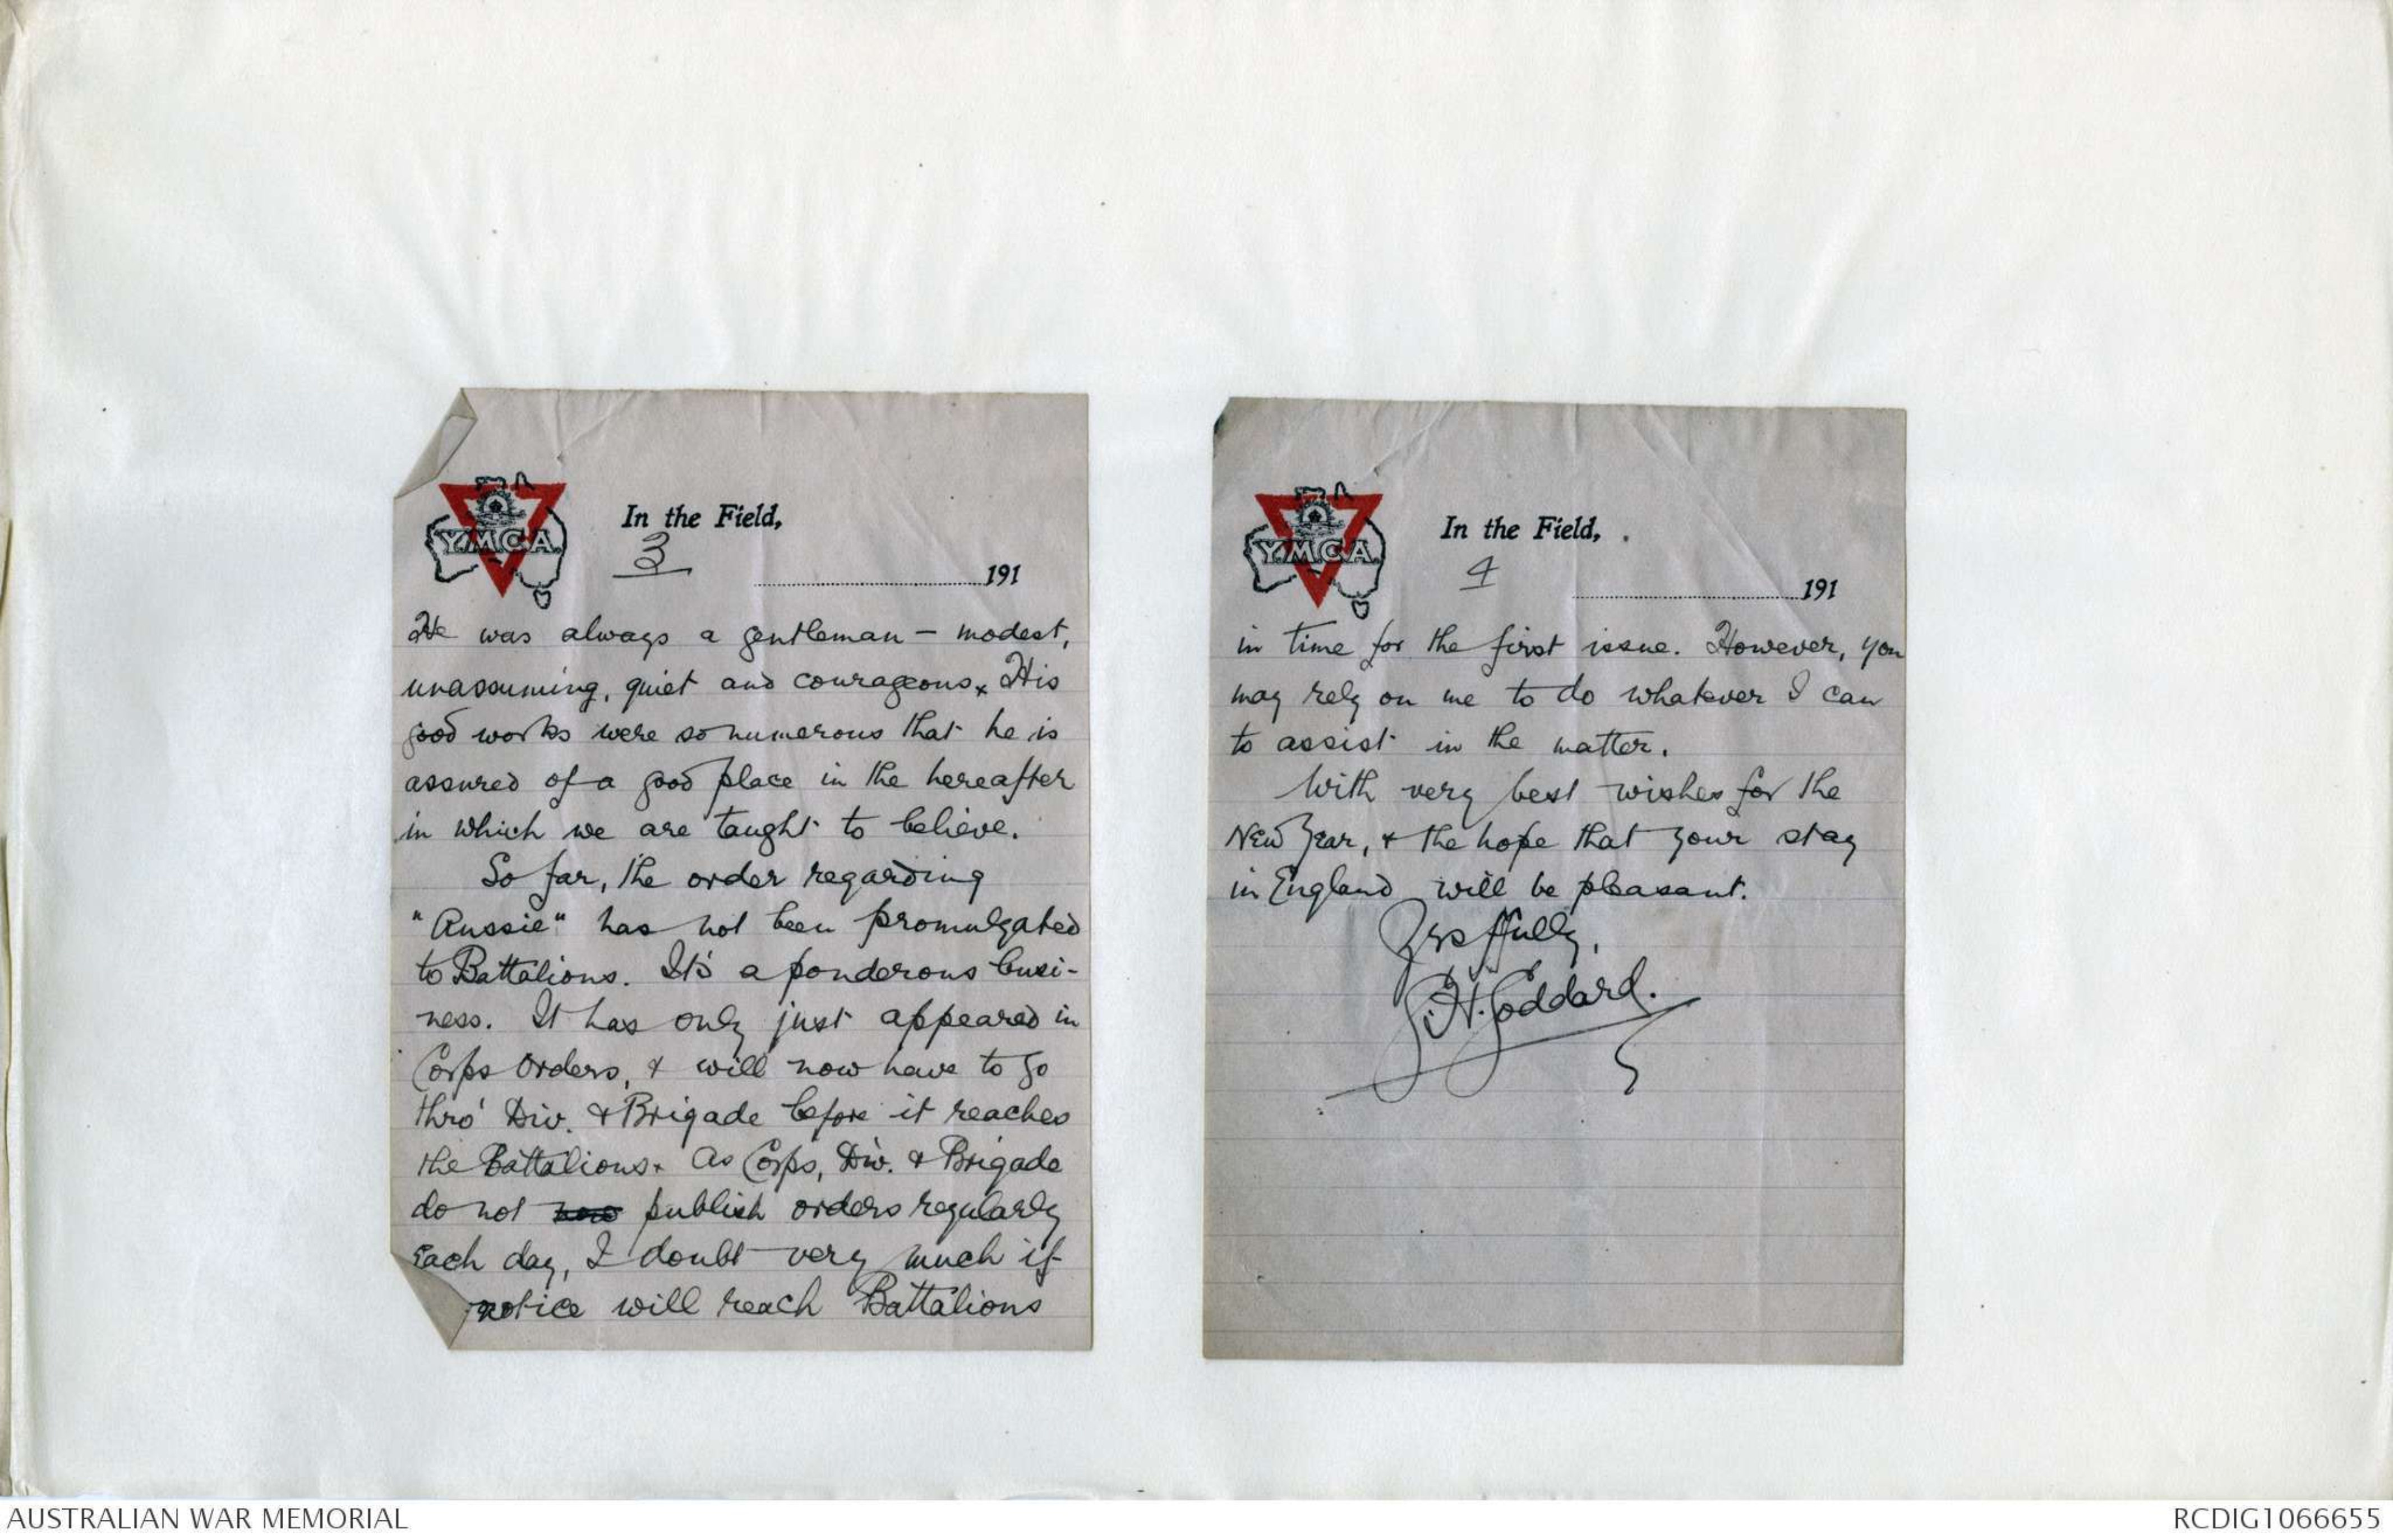 Y.M.C.A.
In the Field,
3
191
He was always a gentleman – modest,
unassuming, quiet and courageous. His
good works were so numerous that he is
assured of a good place in the hereafter
in which we are taught to believe.
So far, the order regarding
"Aussie" has not been promulgated
to Battalions. It's a ponderous busi-
ness. It has only just appeared in
Corps Orders, & will now have to go
thro' Div. & Brigade before it reaches
the Battalions. As Corps, Div. & Brigade
do not publish orders regularly
each day, I doubt very much if
notice will reach Battalions
Y.M.C.A.
In the Field,
4
191
in time for the first issue. However, you
may rely on me to do whatever I can
to assist in the matter.
With very best wishes for the
New Year, & the hope that your stay
in England will be pleasant.
Yrs ffully,
Goddard.
AUSTRALIAN WAR MEMORIAL
RCDIG1066655